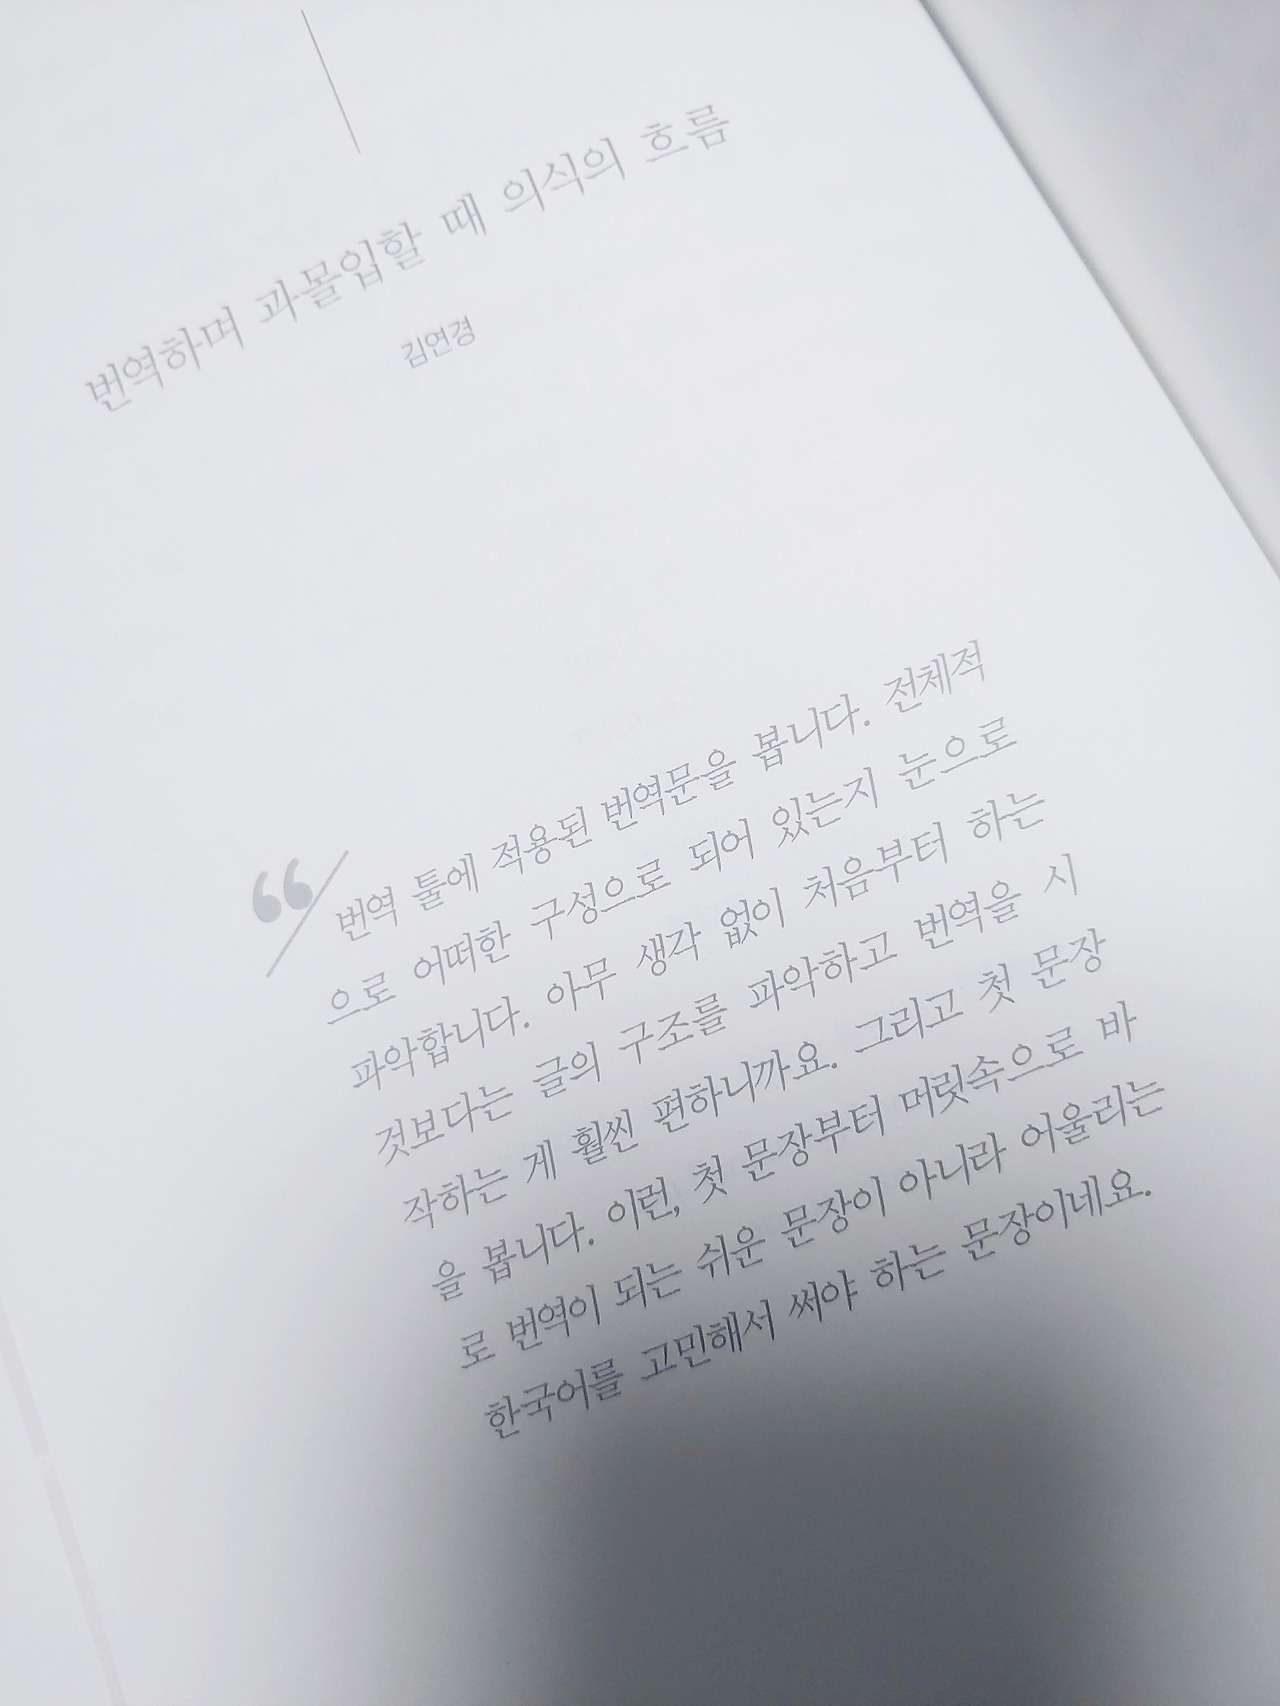 번역하며 과몰입할 때 의식의 흐름
김연경
“
번역 툴에 적용된 번역문을 봅니다. 전체적
으로 어떠한 구성으로 되어 있는지 눈으로
파악합니다. 아무 생각 없이 처음부터 하는
것보다는 글의 구조를 파악하고 번역을 시
작하는 게 훨씬 편하니까요. 그리고 첫 문장
을 봅니다. 이런, 첫 문장부터 머릿속으로 바
로 번역이 되는 쉬운 문장이 아니라 어울리는
한국어를 고민해서 써야 하는 문장이네요.